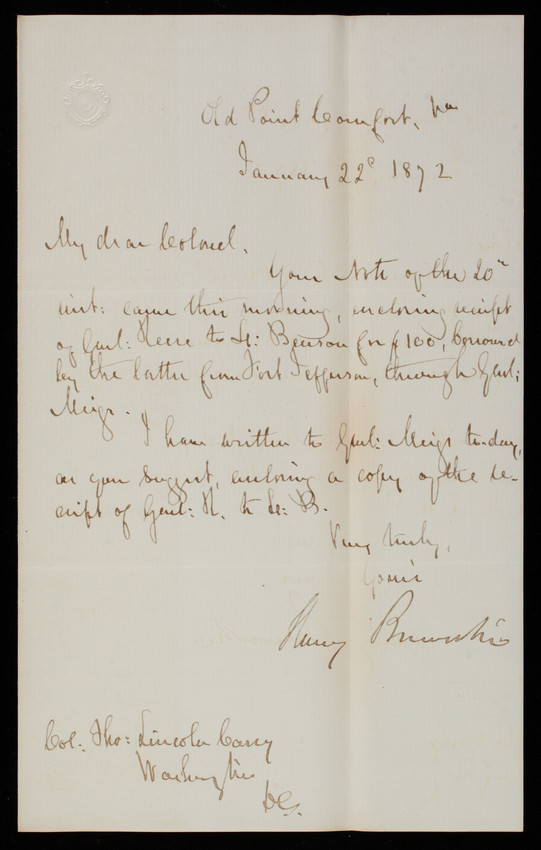 Old Point Comfort, Va
January 22d 1872
My dear Colonel,
Your Note of the 20th
inst: came this morning, enclosing receipt
of Genl: Reese to Lt: Benson for $100, borrowed
by the latter from Fort Jefferson, through Genl:
Meigs.
I have written to Genl: Meigs to-day,
as you suggest, enclosing a copy of the re-
ceipt of Genl: R. to Lt: B.
Very truly,
Yours
Henry
Col: Tho: Lincoln Casey
Washington
D.C.